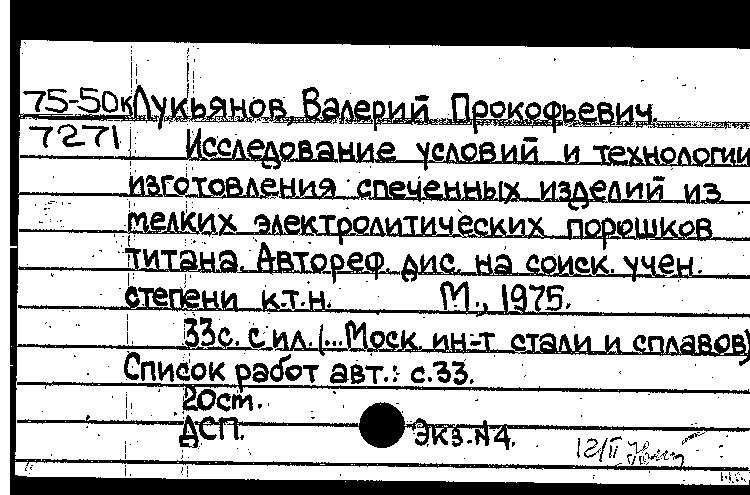 75-50к Лукьянов, Валерий Прокофьевич.
7271 Исследование условий и технологии
изготовления спеченных изделий из
мелких электролитических порошков
титана. Автореф. дис. на соиск. учен.
степени к.т.н. М., 1975.
33с. с ил. (...Моск. ин-т стали и сплавов)
Список работ авт.: с.33.
20см.
ДСП. Экз.N4.
12/II